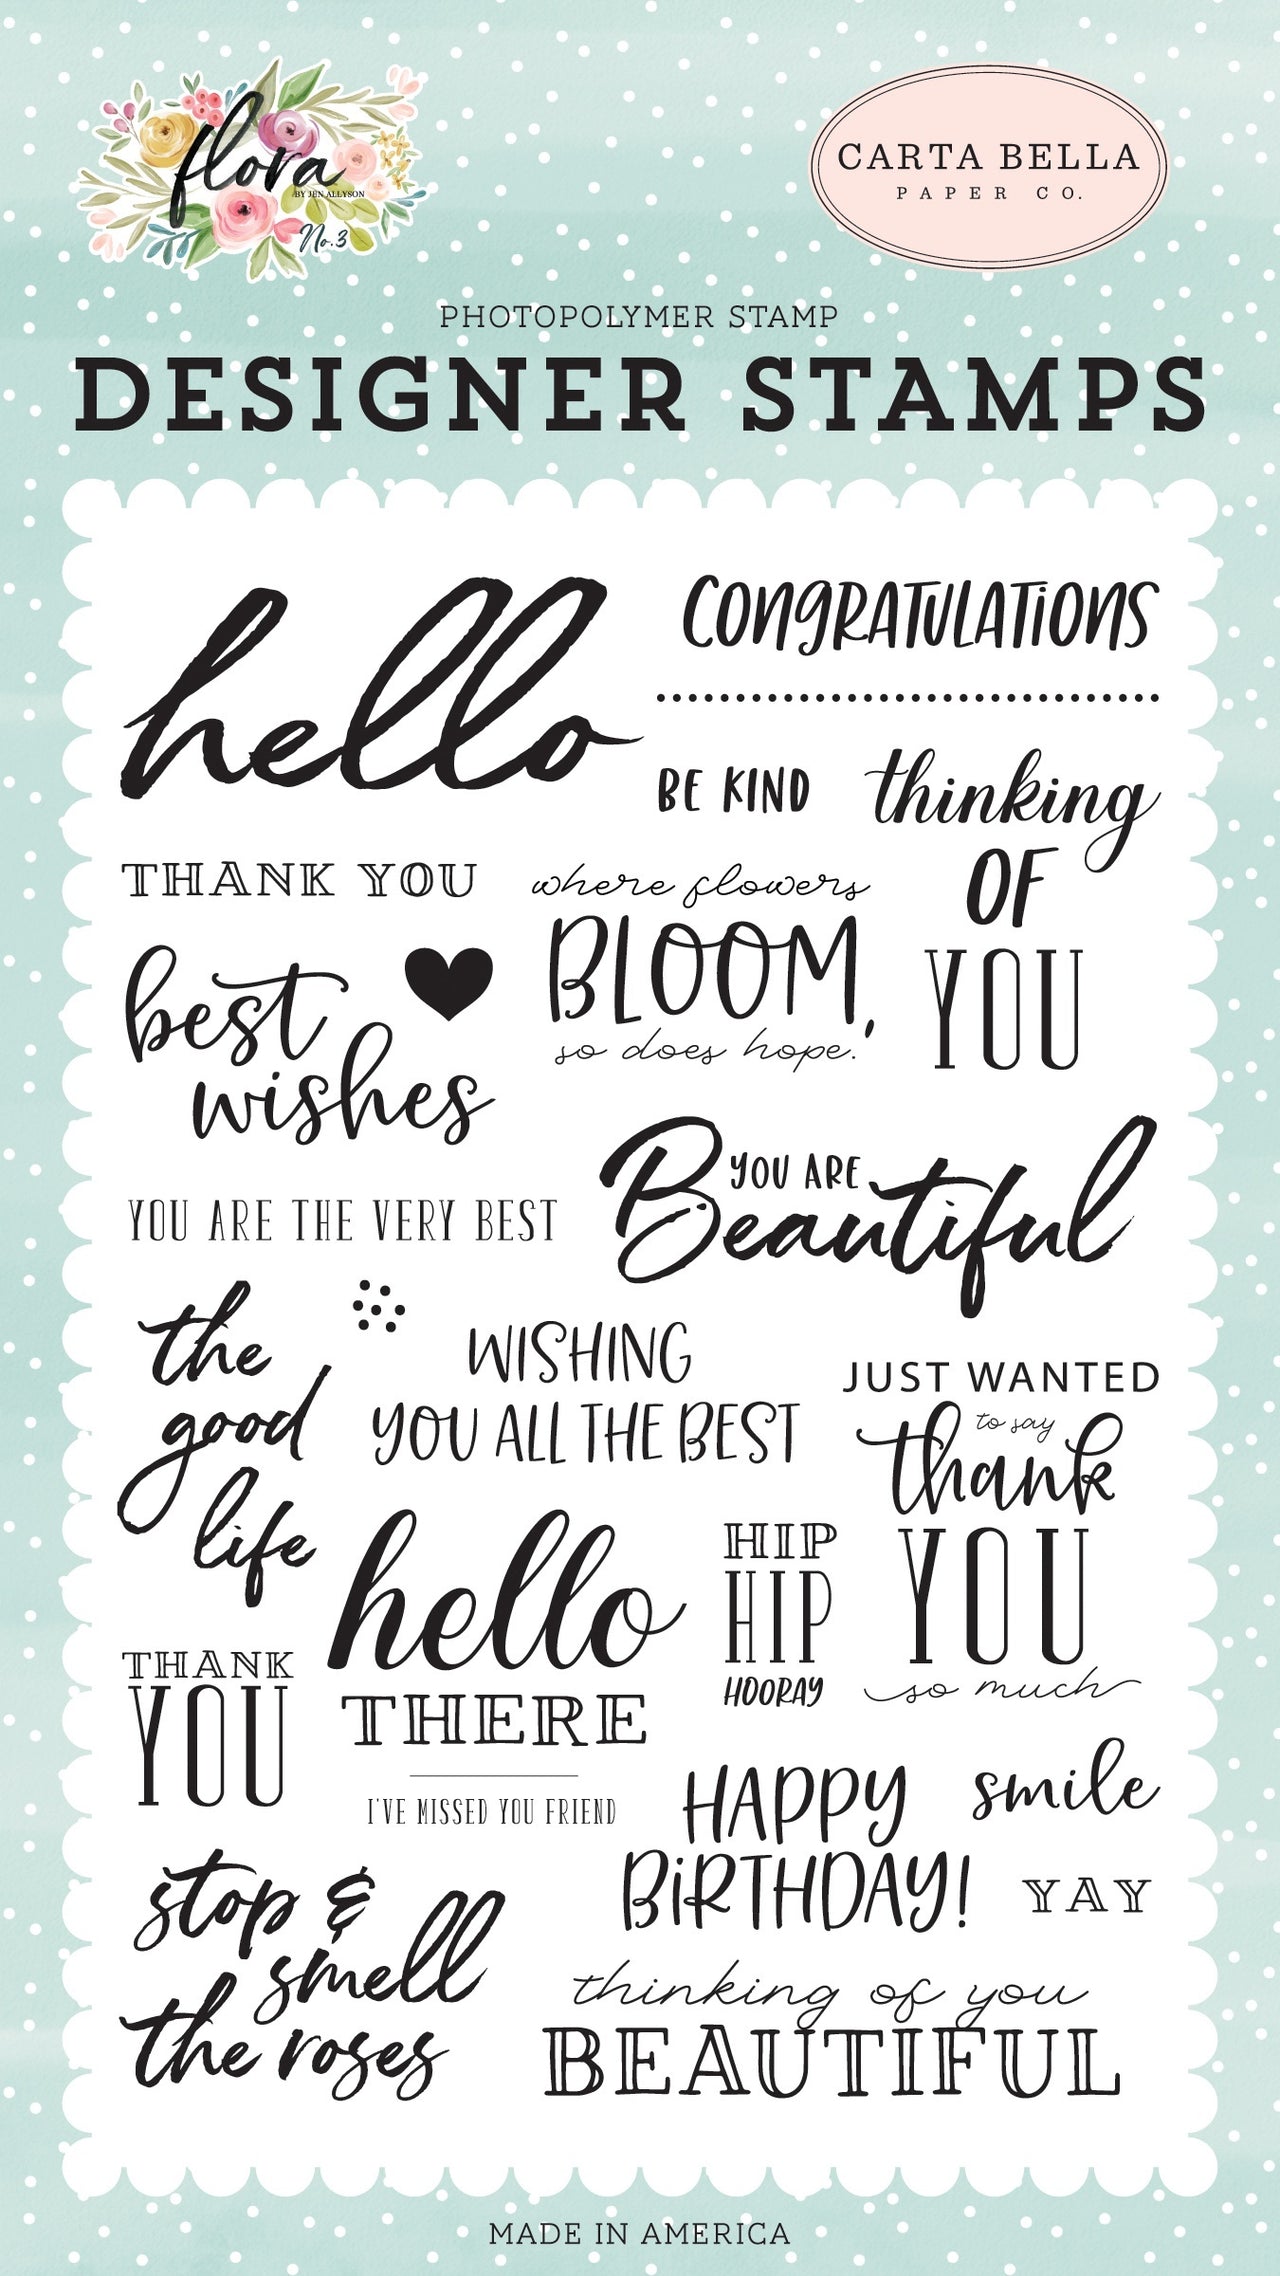 flora
BY JEN ALLYSON
No.3
CARTA BELLA
PAPER CO.
PHOTOPOLYMER STAMP
DESIGNER STAMPS
hello
CONGRATULATIONS
BE KIND
thinking
OF
YOU
THANK YOU
where flowers
BLOOM,
so does hope.
best
wishes
YOU ARE
Beautiful
YOU ARE THE VERY BEST
the
good
life
WISHING
YOU ALL THE BEST
JUST WANTED
to say
thank
YOU
so much
hello
THERE
I'VE MISSED YOU FRIEND
HIP
HIP
HOORAY
THANK
YOU
HAPPY
BIRTHDAY!
smile
YAY
stop &
smell
the roses
thinking of you
BEAUTIFUL
MADE IN AMERICA